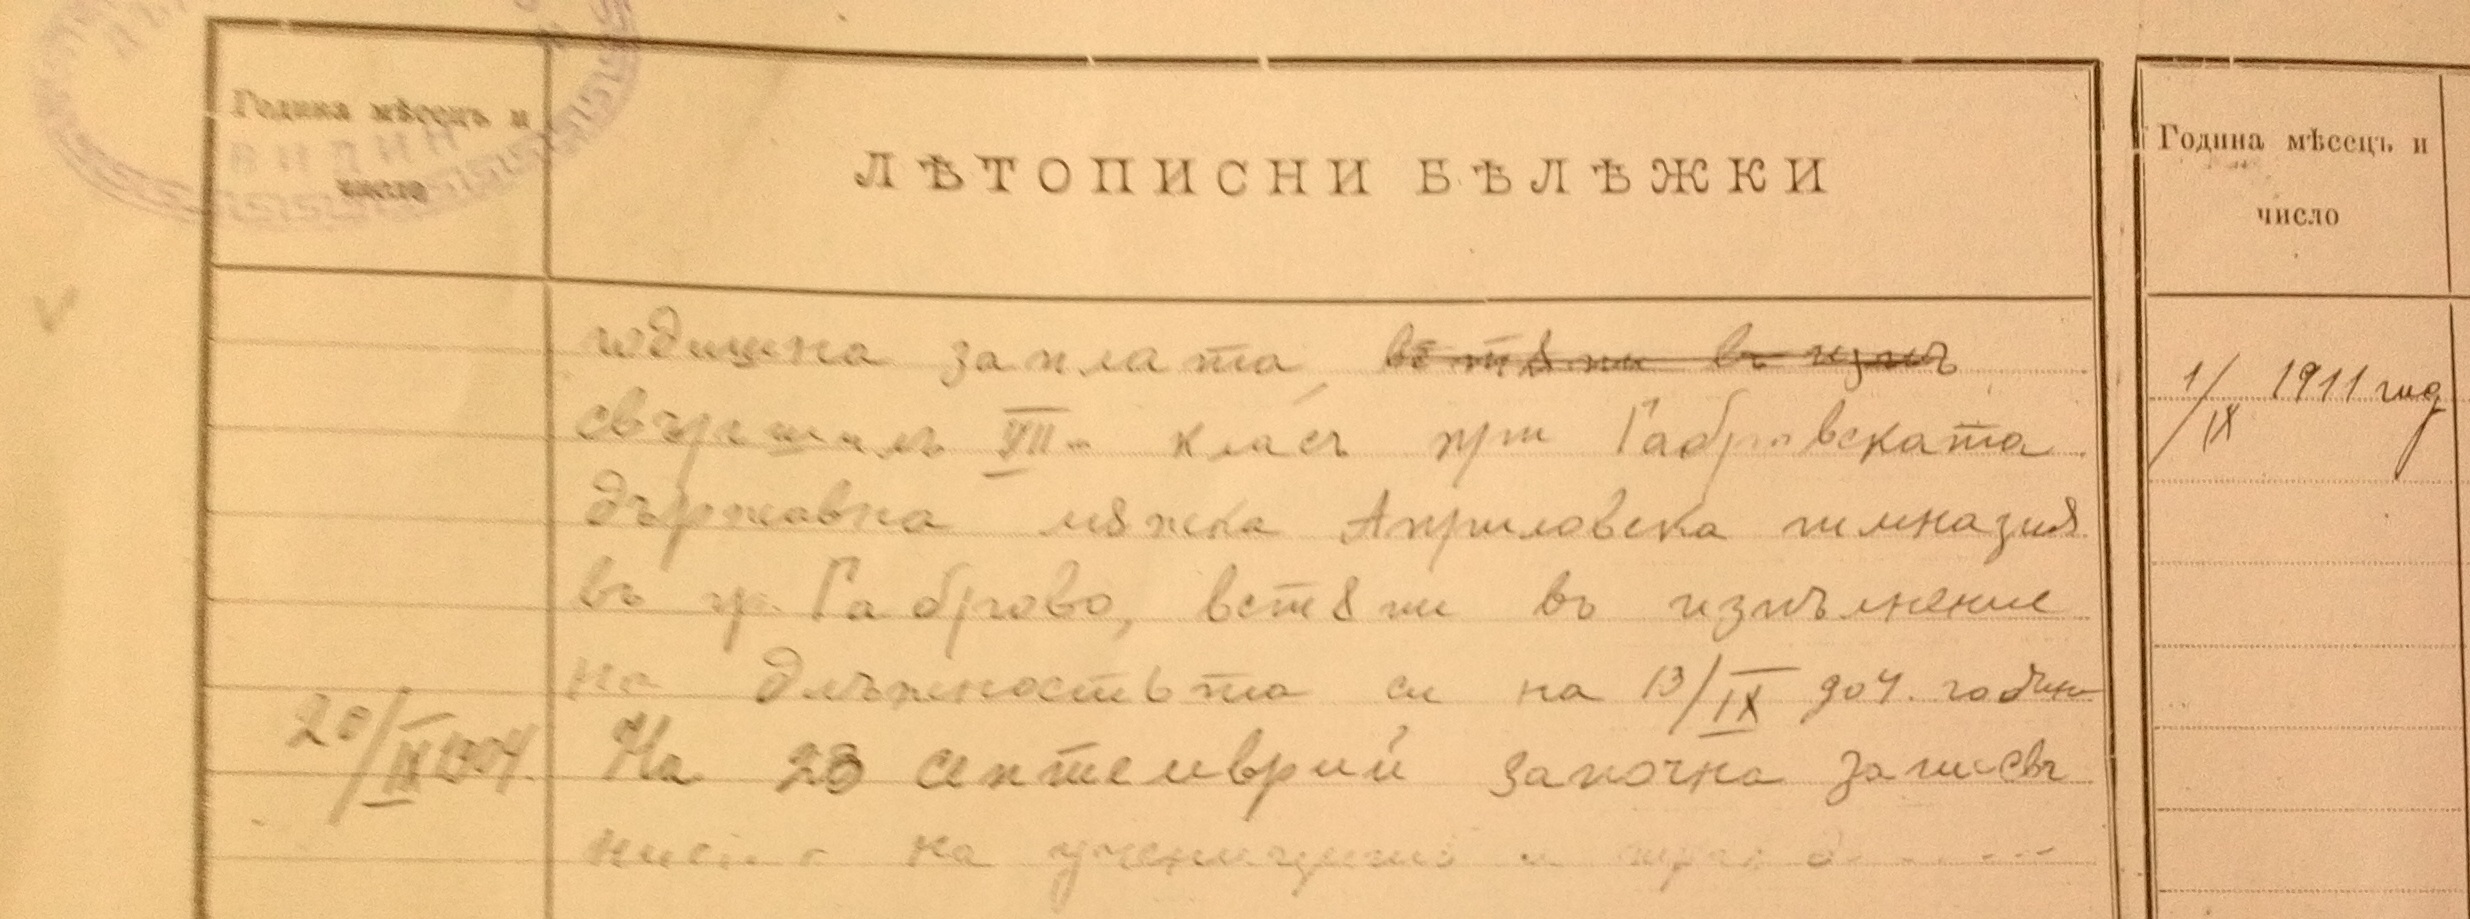 Година мѣсецъ и
число
ВИДИН
ЛѢТОПИСНИ БѢЛѢЖКИ
годишна заплата, встѫпи въ изпъ
свършилъ VII- класъ при Габровската
държавна мѫжка Априловска гимназия
въ гр. Габрово, встѫпи въ изпълнение
на длъжностьта си на 13/IX 904. година
20/IX 1904. На 20 септемврий започна записв
на учениците и
Година мѣсецъ и
число
1/IX 1911 год